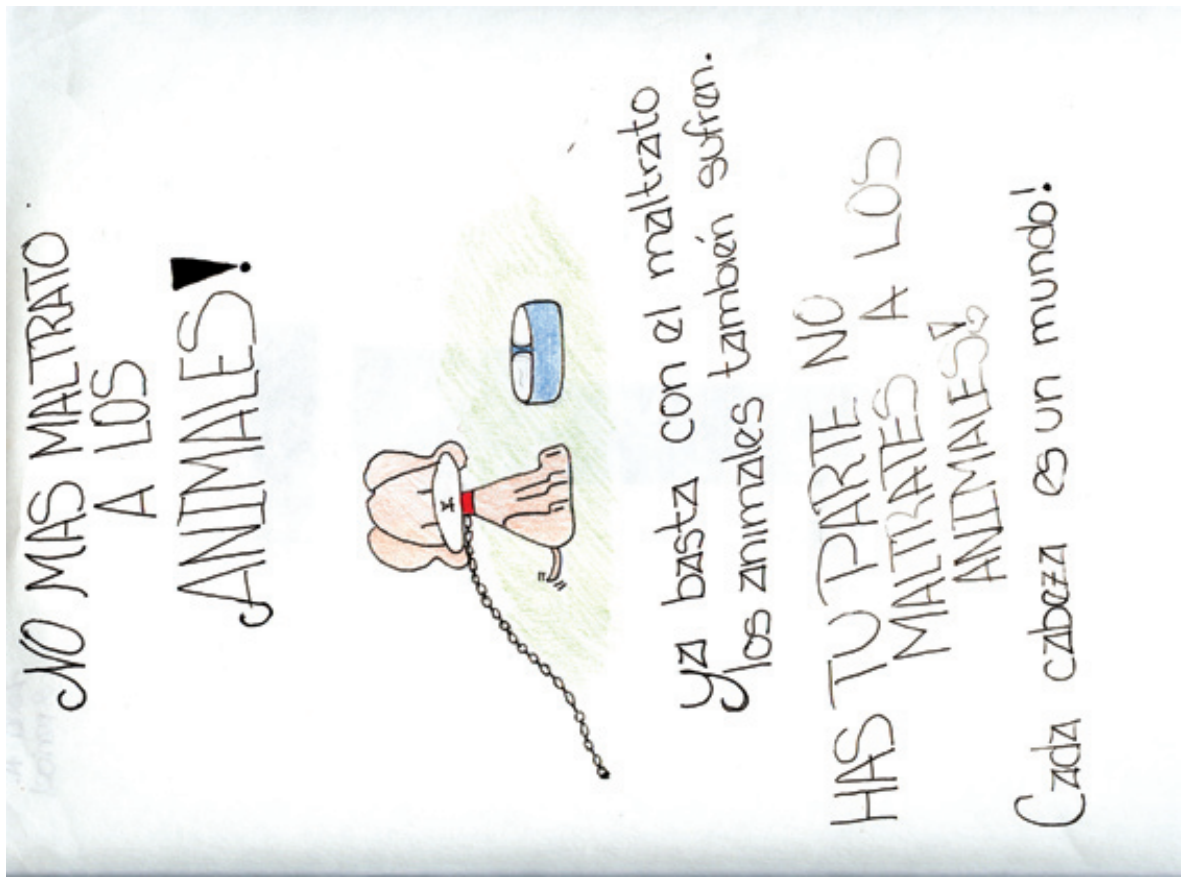 NO MAS MALTRATO
A LOS
ANIMALES!
Ya basta con el maltrato
los animales también sufren.
HAS TU PARTE NO
MALTRATES A LOS
ANIMALES!
Cada cabeza es un mundo!